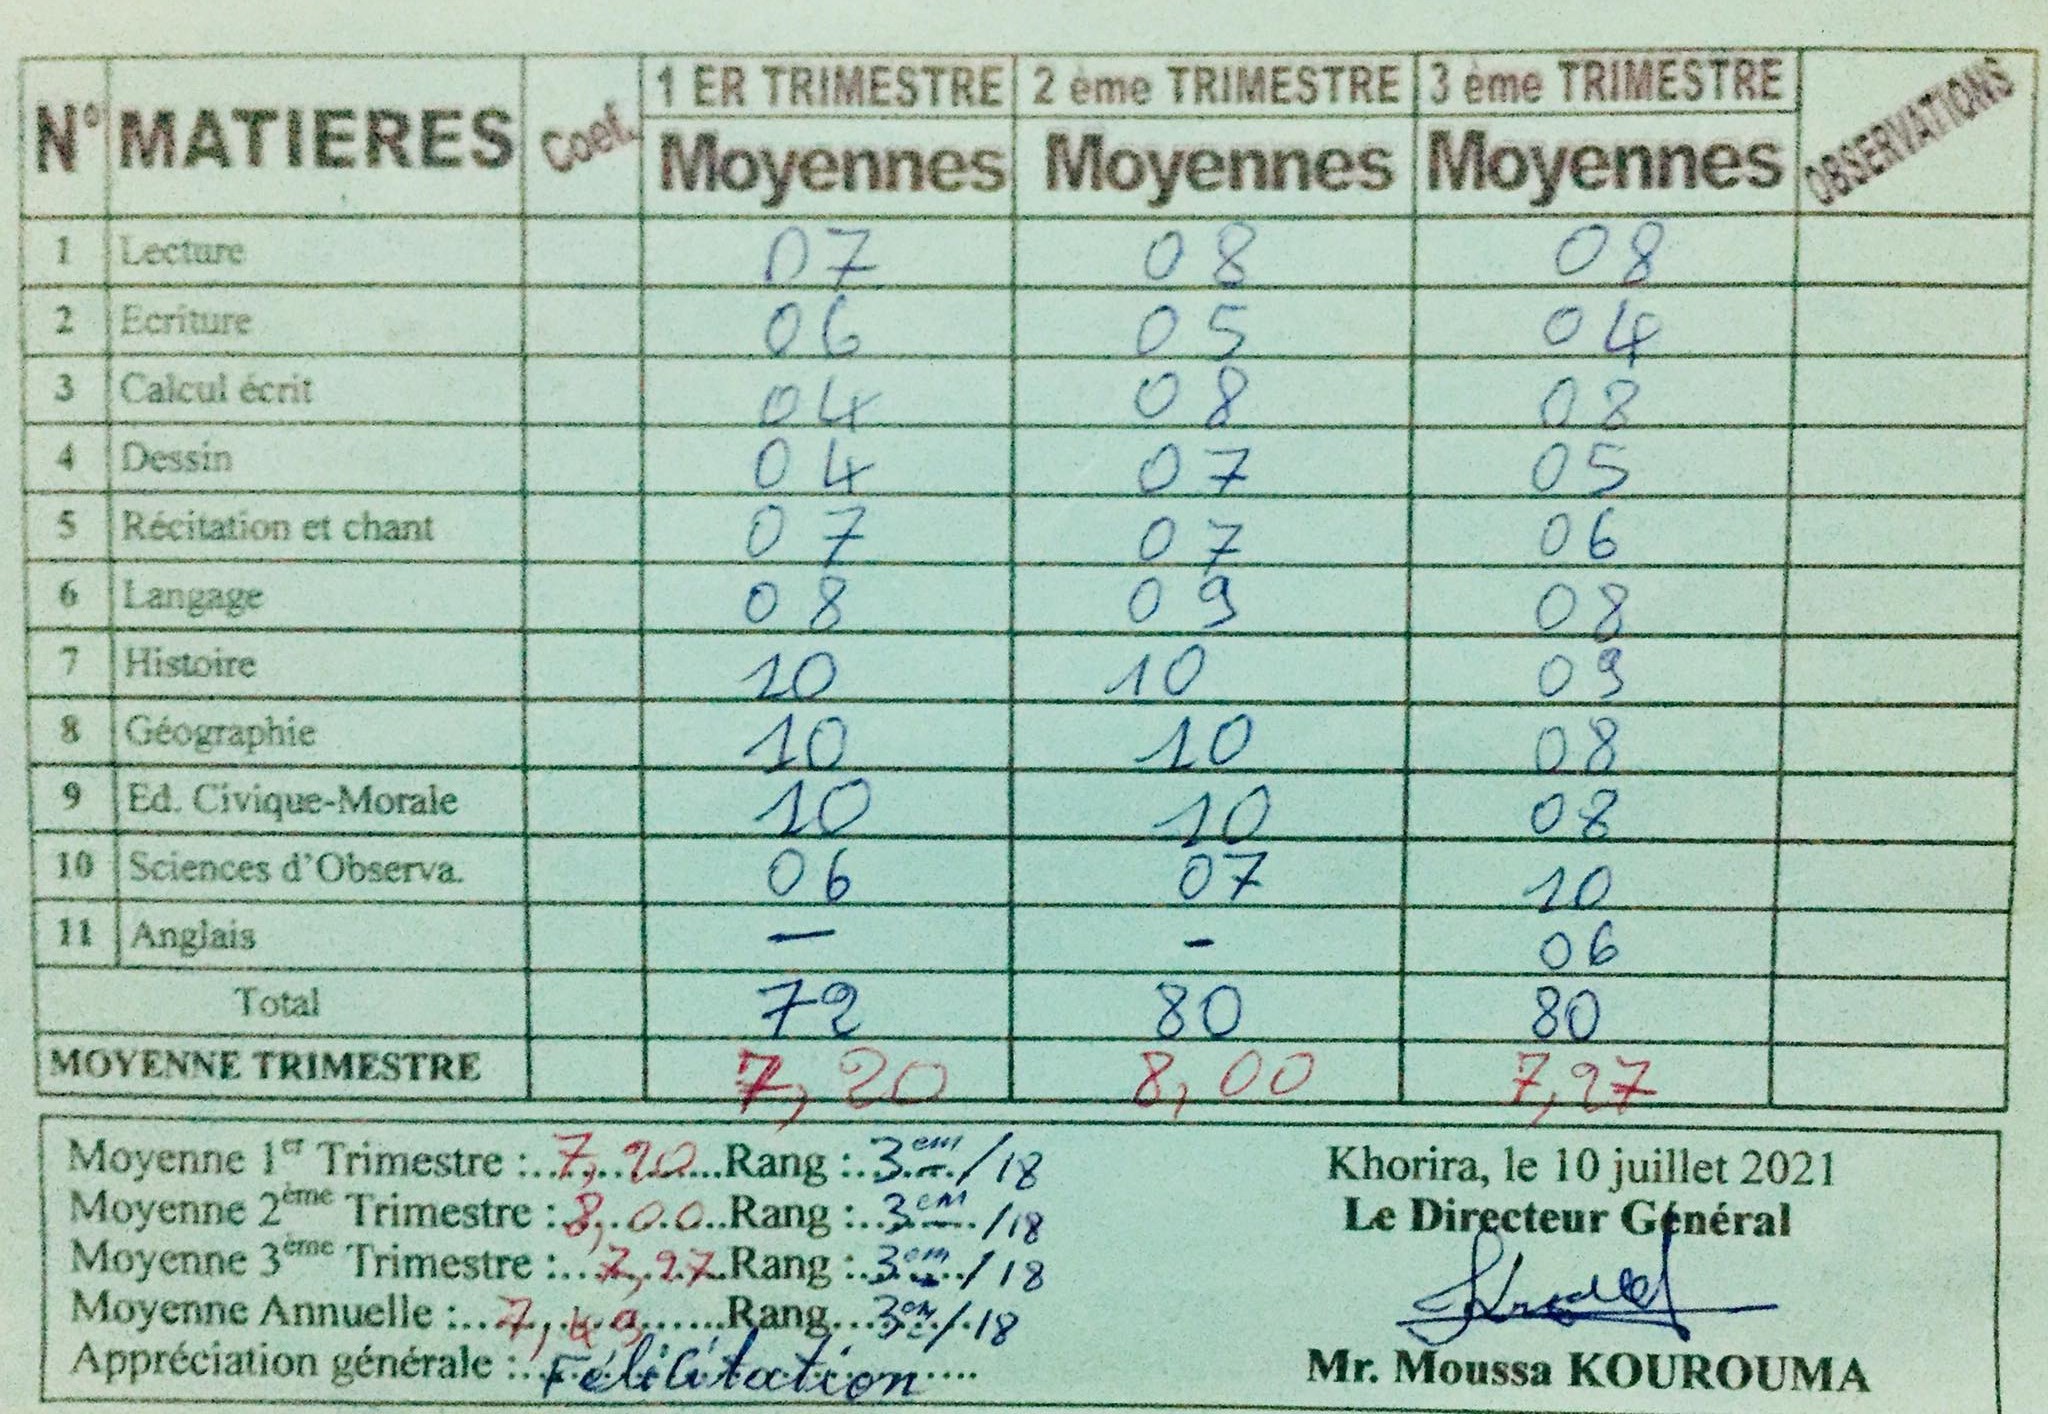 N° MATIERES Coef. 1 ER TRIMESTRE 2 ème TRIMESTRE 3 ème TRIMESTRE OBSERVATIONS
Moyennes Moyennes Moyennes
1 Lecture 07 08 08
2 Ecriture 06 05 04
3 Calcul écrit 04 08 08
4 Dessin 04 07 05
5 Récitation et chant 07 07 06
6 Langage 08 09 08
7 Histoire 10 10 09
8 Géographie 10 10 08
9 Ed. Civique-Morale 10 10 08
10 Sciences d'Observa. 06 07 10
11 Anglais — - 06
Total 72 80 80
MOYENNE TRIMESTRE 7,20 8,00 7,27
Moyenne 1er Trimestre : 7,20 Rang : 3em/18
Moyenne 2ème Trimestre : 8,00 Rang : 3em/18
Moyenne 3ème Trimestre : 7,27 Rang : 3em/18
Moyenne Annuelle : 7,49 Rang 3em/18
Appréciation générale : Félicitation
Khorira, le 10 juillet 2021
Le Directeur Général
Mr. Moussa KOUROUMA